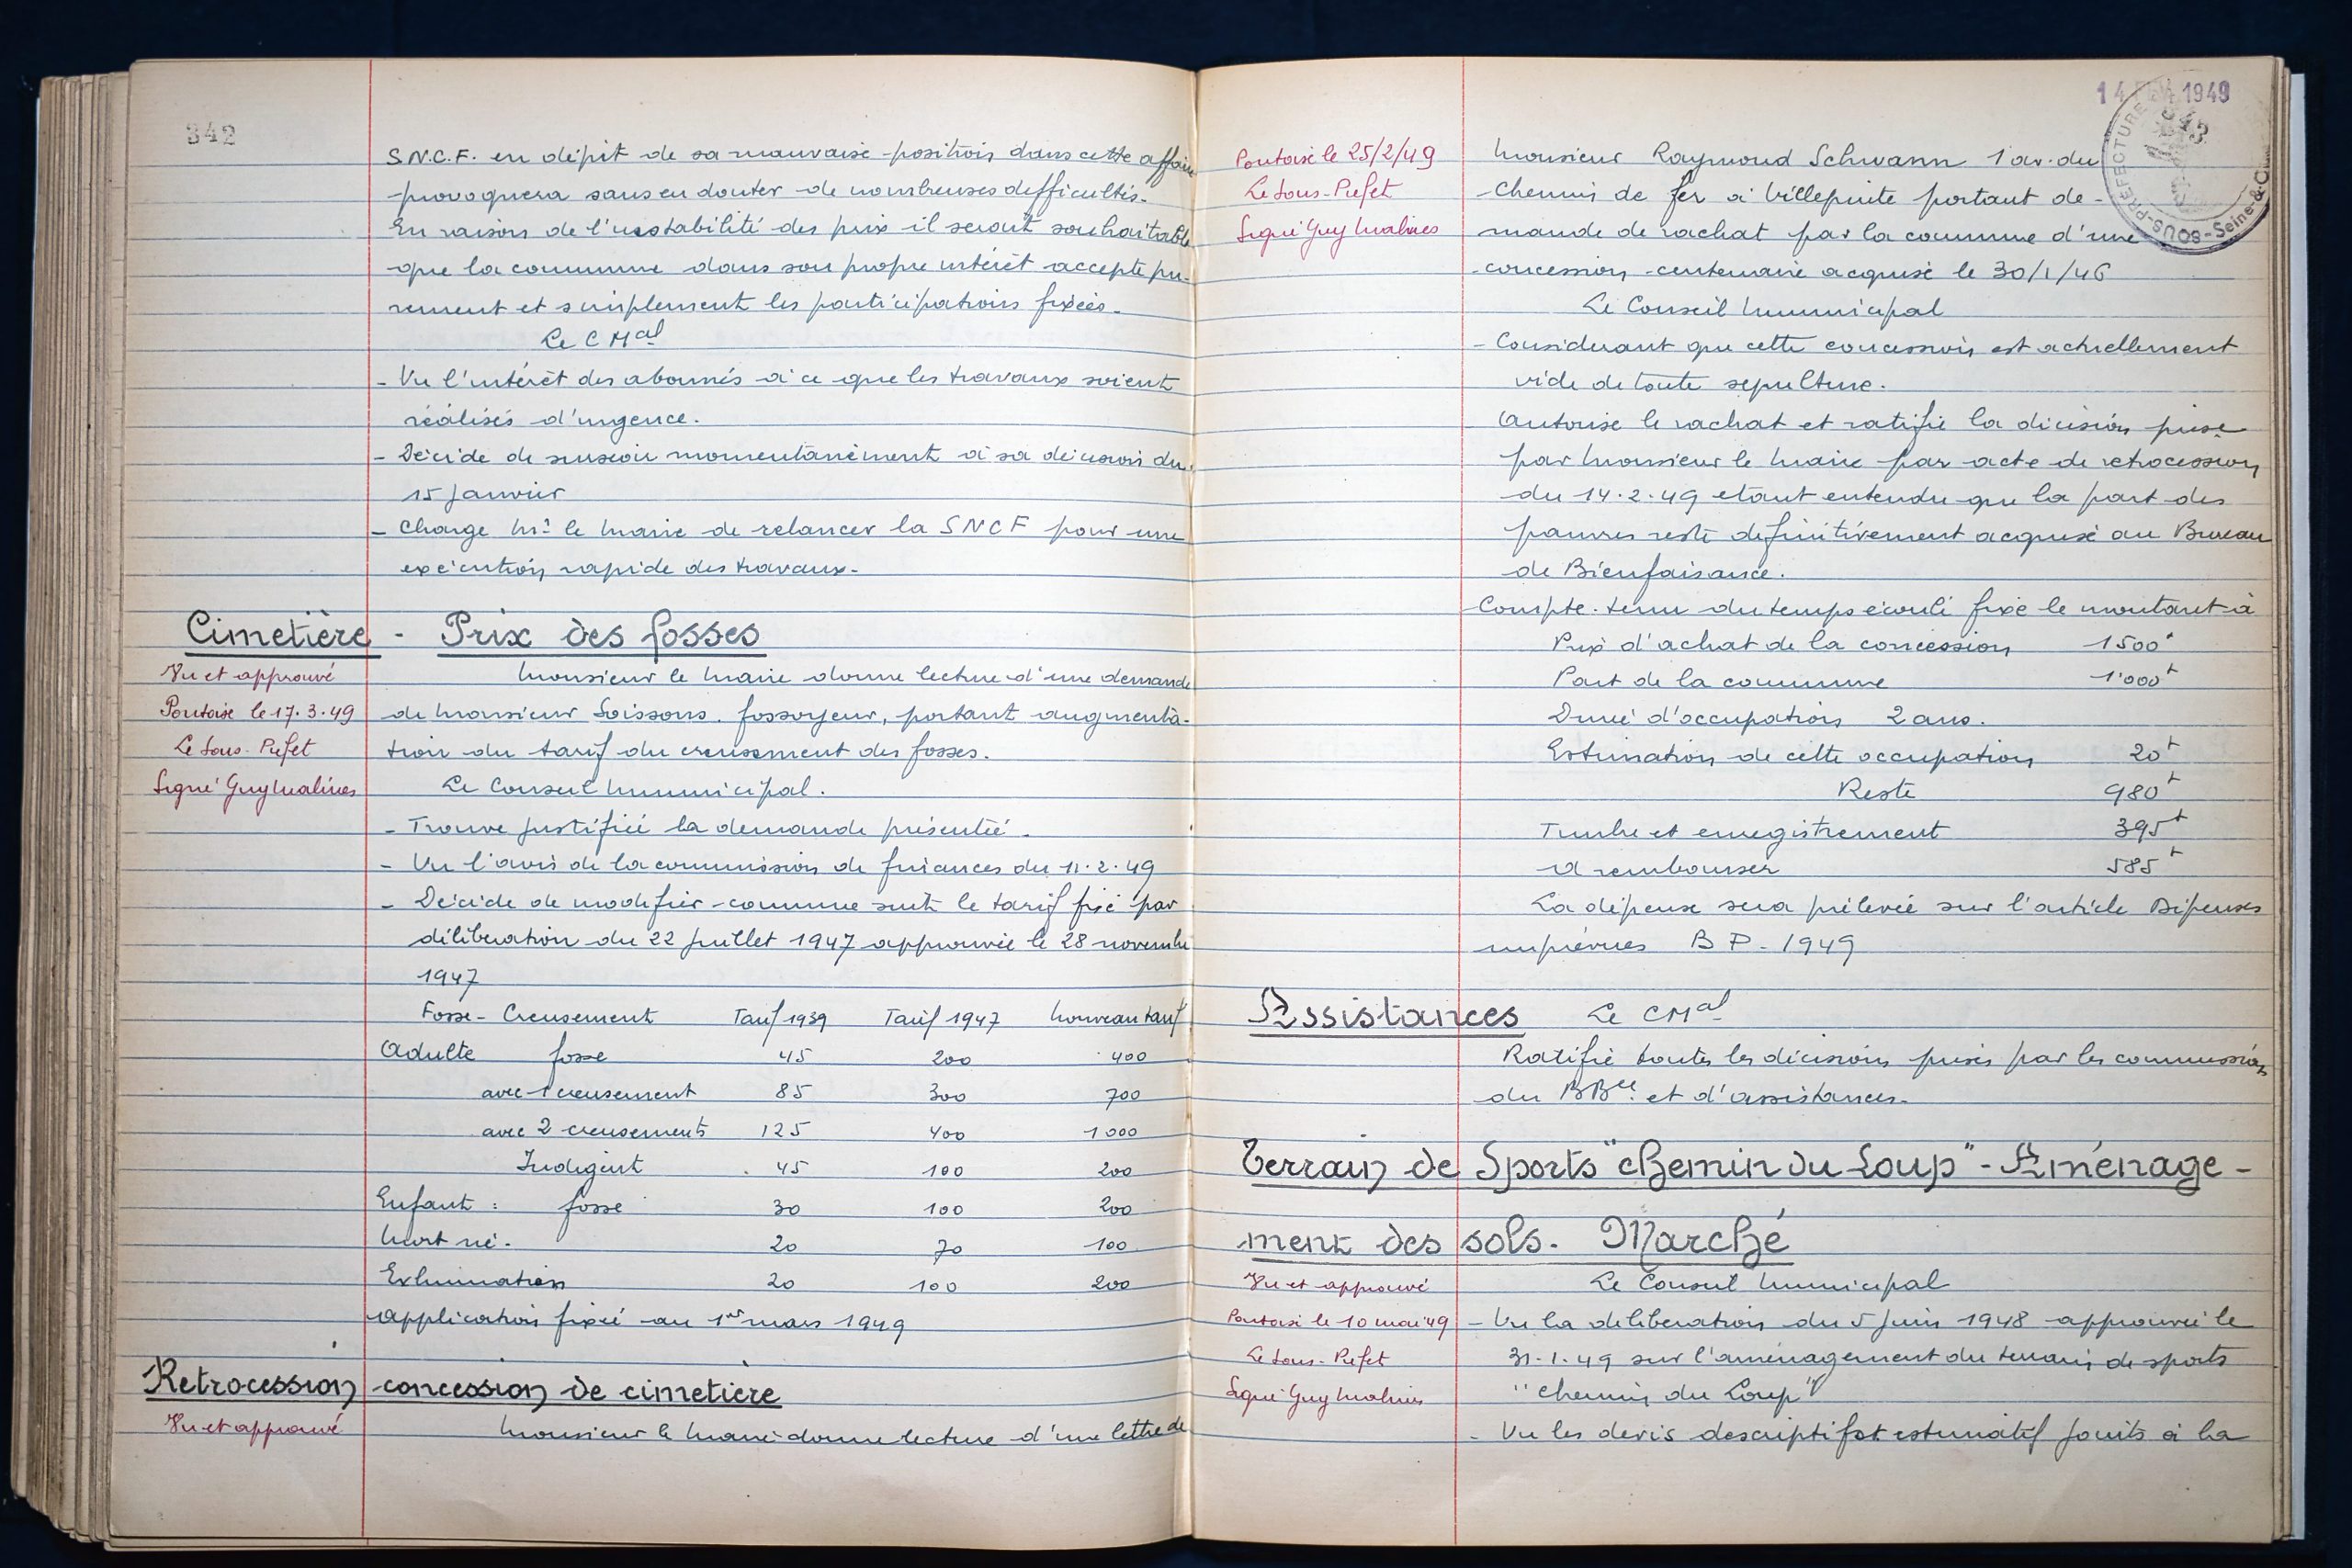 342
S.N.C.F. en dépit de sa mauvaise position dans cette affaire
provoquera sans en douter de nombreuses difficultés.
En raison de l'instabilité des prix il serait souhaitable
que la commune dans son propre intérêt accepte pu-
rement et simplement les participations fixées.
Le C Mal
- Vu l'intérêt des abonnés à ce que les travaux soient
réalisés d'urgence.
- Décide de surseoir momentanément à sa décision du
15 Janvier
- Charge Mr le Maire de relancer la SNCF pour une
exécution rapide des travaux.
Cimetière - Prix des fosses
Vu et approuvé
Pontoise le 17.3.49
Le Sous-Préfet
Signé Guy Malines
Monsieur le Maire donne lecture d'une demande
de Monsieur Soissons. fossoyeur, portant augmenta-
tion du tarif du creusement des fosses.
Le Conseil Municipal.
- Trouve justifiée la demande présentée.
- Vu l'avis de la commission de finances du 11.2.49
- Décide de modifier comme suit le tarif fixé par
délibération du 22 Juillet 1947 approuvée le 28 novembre
1947
Fosse - Creusement Tarif 1939 Tarif 1947 Nouveau tarif
Adulte fosse 45 200 400
avec 1 creusement 85 300 700
avec 2 creusements 125 400 1000
Indigent 45 100 200
Enfant : fosse 30 100 200
Mort né. 20 70 100
Exhumation 20 100 200
application fixée au 1er mars 1949
Retrocession concession de cimetière
Vu et approuvé
Monsieur le Maire donne lecture d'une lettre de
14 1949
SOUS-PRÉFECTURE
Seine-&-
Pontoise le 25/2/49
Le Sous-Préfet
Signé Guy Malines
Monsieur Raymond Schwann 1 av. du
Chemin de fer à Villepinte portant de-
mande de rachat par la commune d'une
concession centenaire acquise le 30/1/46
Le Conseil Municipal
- Considerant que cette concession est actuellement
vide de toute sepulture.
Autorise le rachat et ratifie la décision prise
par Monsieur le Maire par acte de retrocession
du 14.2.49 etant entendu que la part des
pauvres reste definitivement acquise au Bureau
de Bienfaisance.
Compte tenu du temps écoulé fixe le montant à
Prix d'achat de la concession 1500f
Part de la commune 1.000f
Durée d'occupation 2 ans.
Estimation de cette occupation 20f
Reste 980f
Timbre et enregistrement 395f
A rembourser 585f
La dépense sera prélevée sur l'article Dépenses
imprévues B P - 1949
Assistances Le CMal
Ratifie toutes les décisions prises par les commissions
du BBce. et d'assistances.
Terrain de Sports "Chemin du Loup" - Aménage-
ment des sols. Marché
Vu et approuvé
Pontoise le 10 mai 49
Le Sous-Préfet
Signé Guy Malines
Le Conseil Municipal
- Vu la deliberation du 5 Juin 1948 approuvée le
31.1.49 sur l'aménagement du terrain de sports
"Chemin du Loup"
- Vu les devis descriptif et estimatif joints à la